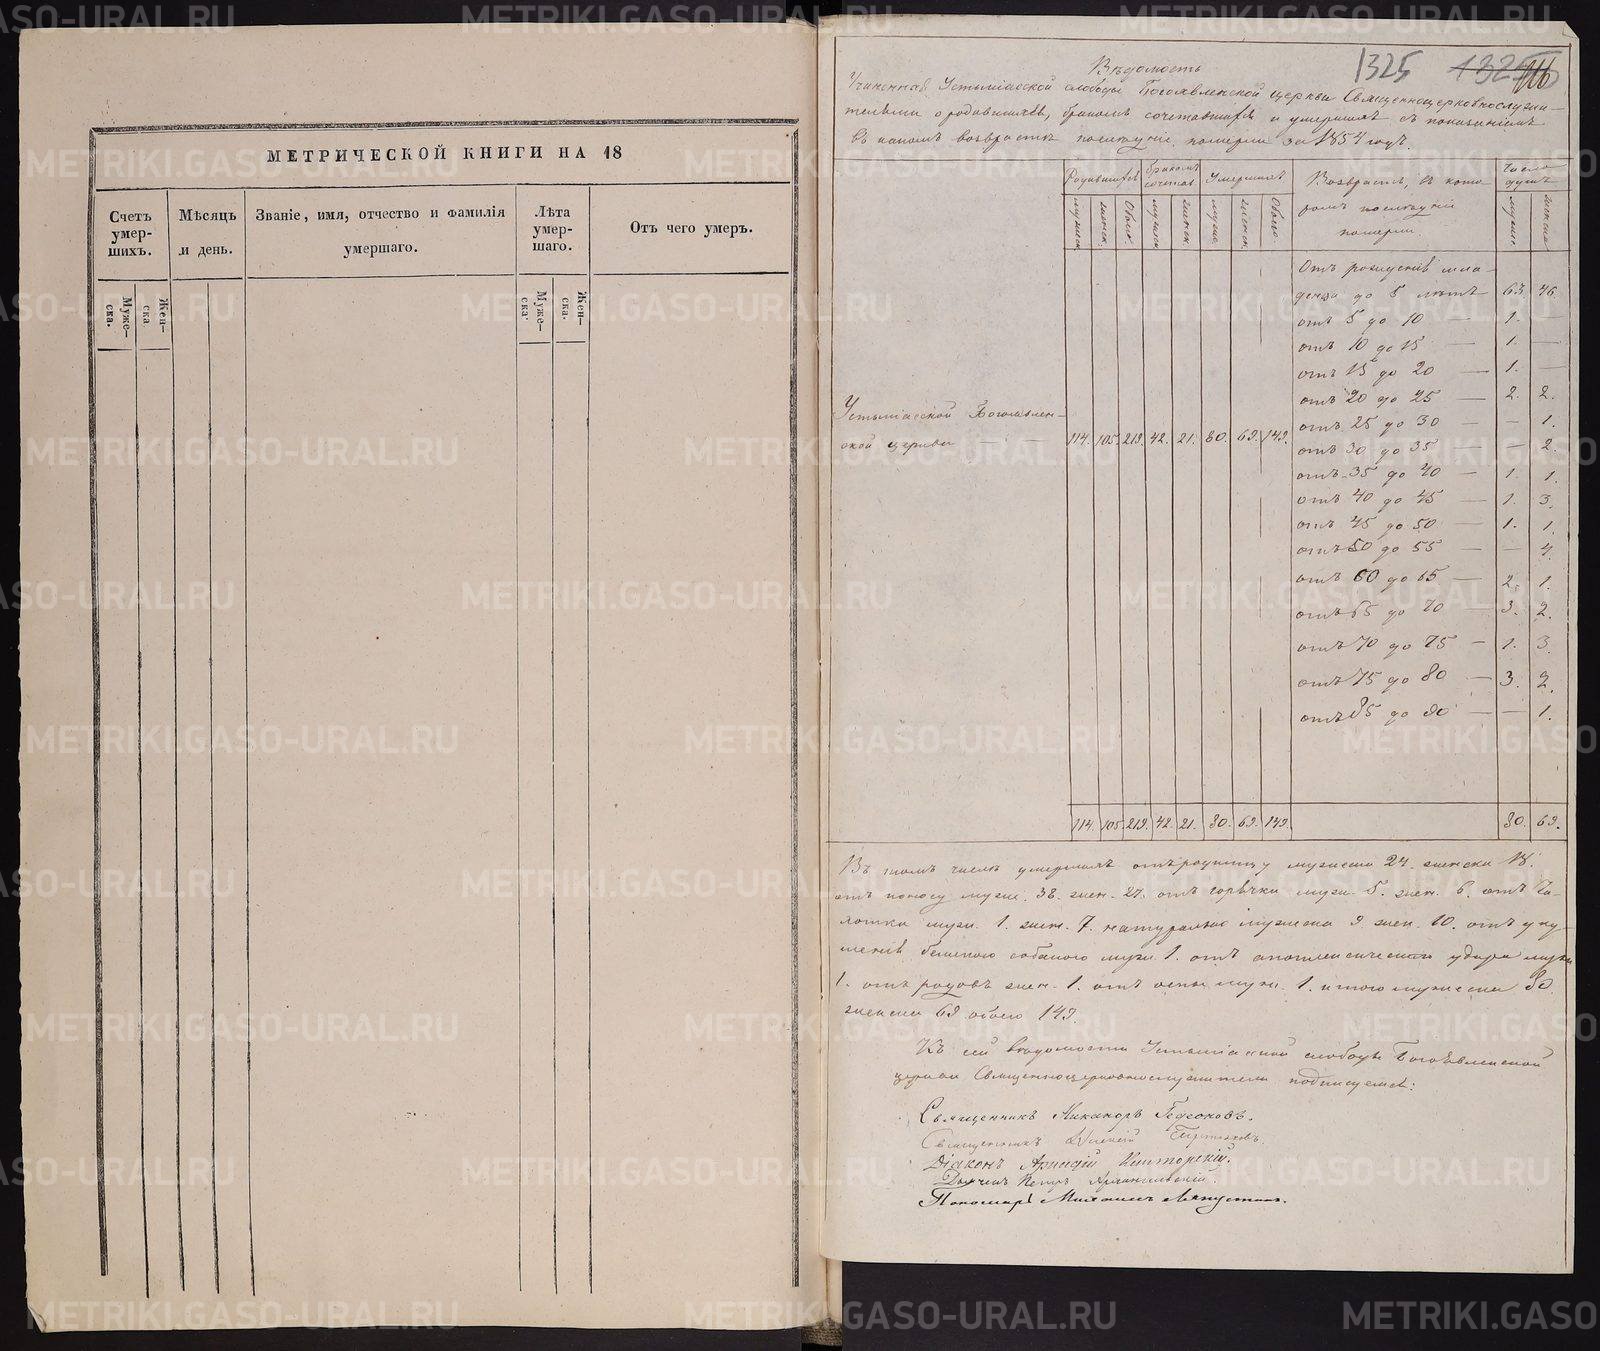 МЕТРИЧЕСКОЙ КНИГИ НА 18
Счетъ умер-шихъ.
Мѣсяцъ и день.
Званіе, имя, отчество и фамилія умершаго.
Лѣта умер-шаго.
Отъ чего умеръ.
Муже-ска.
Жен-ска
Муже-ска.
Жен-ска.
1325
Вѣдомость
Учиненная Устьмiасской слободы Богоявленской церкви Священноцерковнослужи-
телями о родившихся, бракомъ сочетавшихся и умершихъ съ показаніемъ
въ какомъ возврастѣ послѣдніе померли за 1854 годъ.
Родившихся
Бракомъ сочетав.
Умершихъ
Возврастъ, въ кото-
ромъ послѣдніе
померли.
Число душъ
мужеск.
женск.
Обоего.
мужеск.
женск.
мужес.
женск.
Обоего.
мужес.
женска
Отъ рожденія мла-
денца до 5 лѣтъ 63. 46.
отъ 5 до 10 — 1. —
отъ 10 до 15 — 1. —
отъ 15 до 20 — 1. —
отъ 20 до 25 — 2. 2.
отъ 25 до 30 — — 1.
отъ 30 до 35 — — 2.
отъ 35 до 40 — 1. 1.
отъ 40 до 45 — 1. 3.
отъ 45 до 50 — 1. 1.
отъ 50 до 55 — — 4.
отъ 60 до 65 — 2. 1.
отъ 65 до 70 — 3. 2.
отъ 70 до 75 — 1. 3.
отъ 75 до 80 — 3. 2.
отъ 85 до 90 — — 1.
Устьмiасской Богоявлен-
ской церкви — — 114. 105. 219. 42. 21. 80. 69. 149.
114. 105. 219. 42. 21. 80. 69. 149. 80. 69.
Въ томъ числѣ умершихъ отъ родимцу мужеска 24. женска 18.
отъ поносу муже. 38. жен. 27. отъ горячки муж. 5. жен. 6. отъ Ча-
хотки муж. 1. жен. 7. натурально мужеска 9. жен. 10. отъ уку-
шенія бешеною собакою муж. 1. отъ апоплексическаго удара муж.
1. отъ родовъ жен. 1. отъ оспы муж. 1. итого мужеска 80.
женска 69 обоего 149.
Къ сей вѣдомости Устьмiасской слободы Богоявленской
церкви Священноцерковнослужители подписуемся:
Священникъ Никаноръ Гедеоновъ.
Священникъ
Діаконъ Аркадій
Дьячекъ Петръ Архангельскій.
Пономарь Михаилъ Ляпустинъ.
METRIKI.GASO-URAL.RU